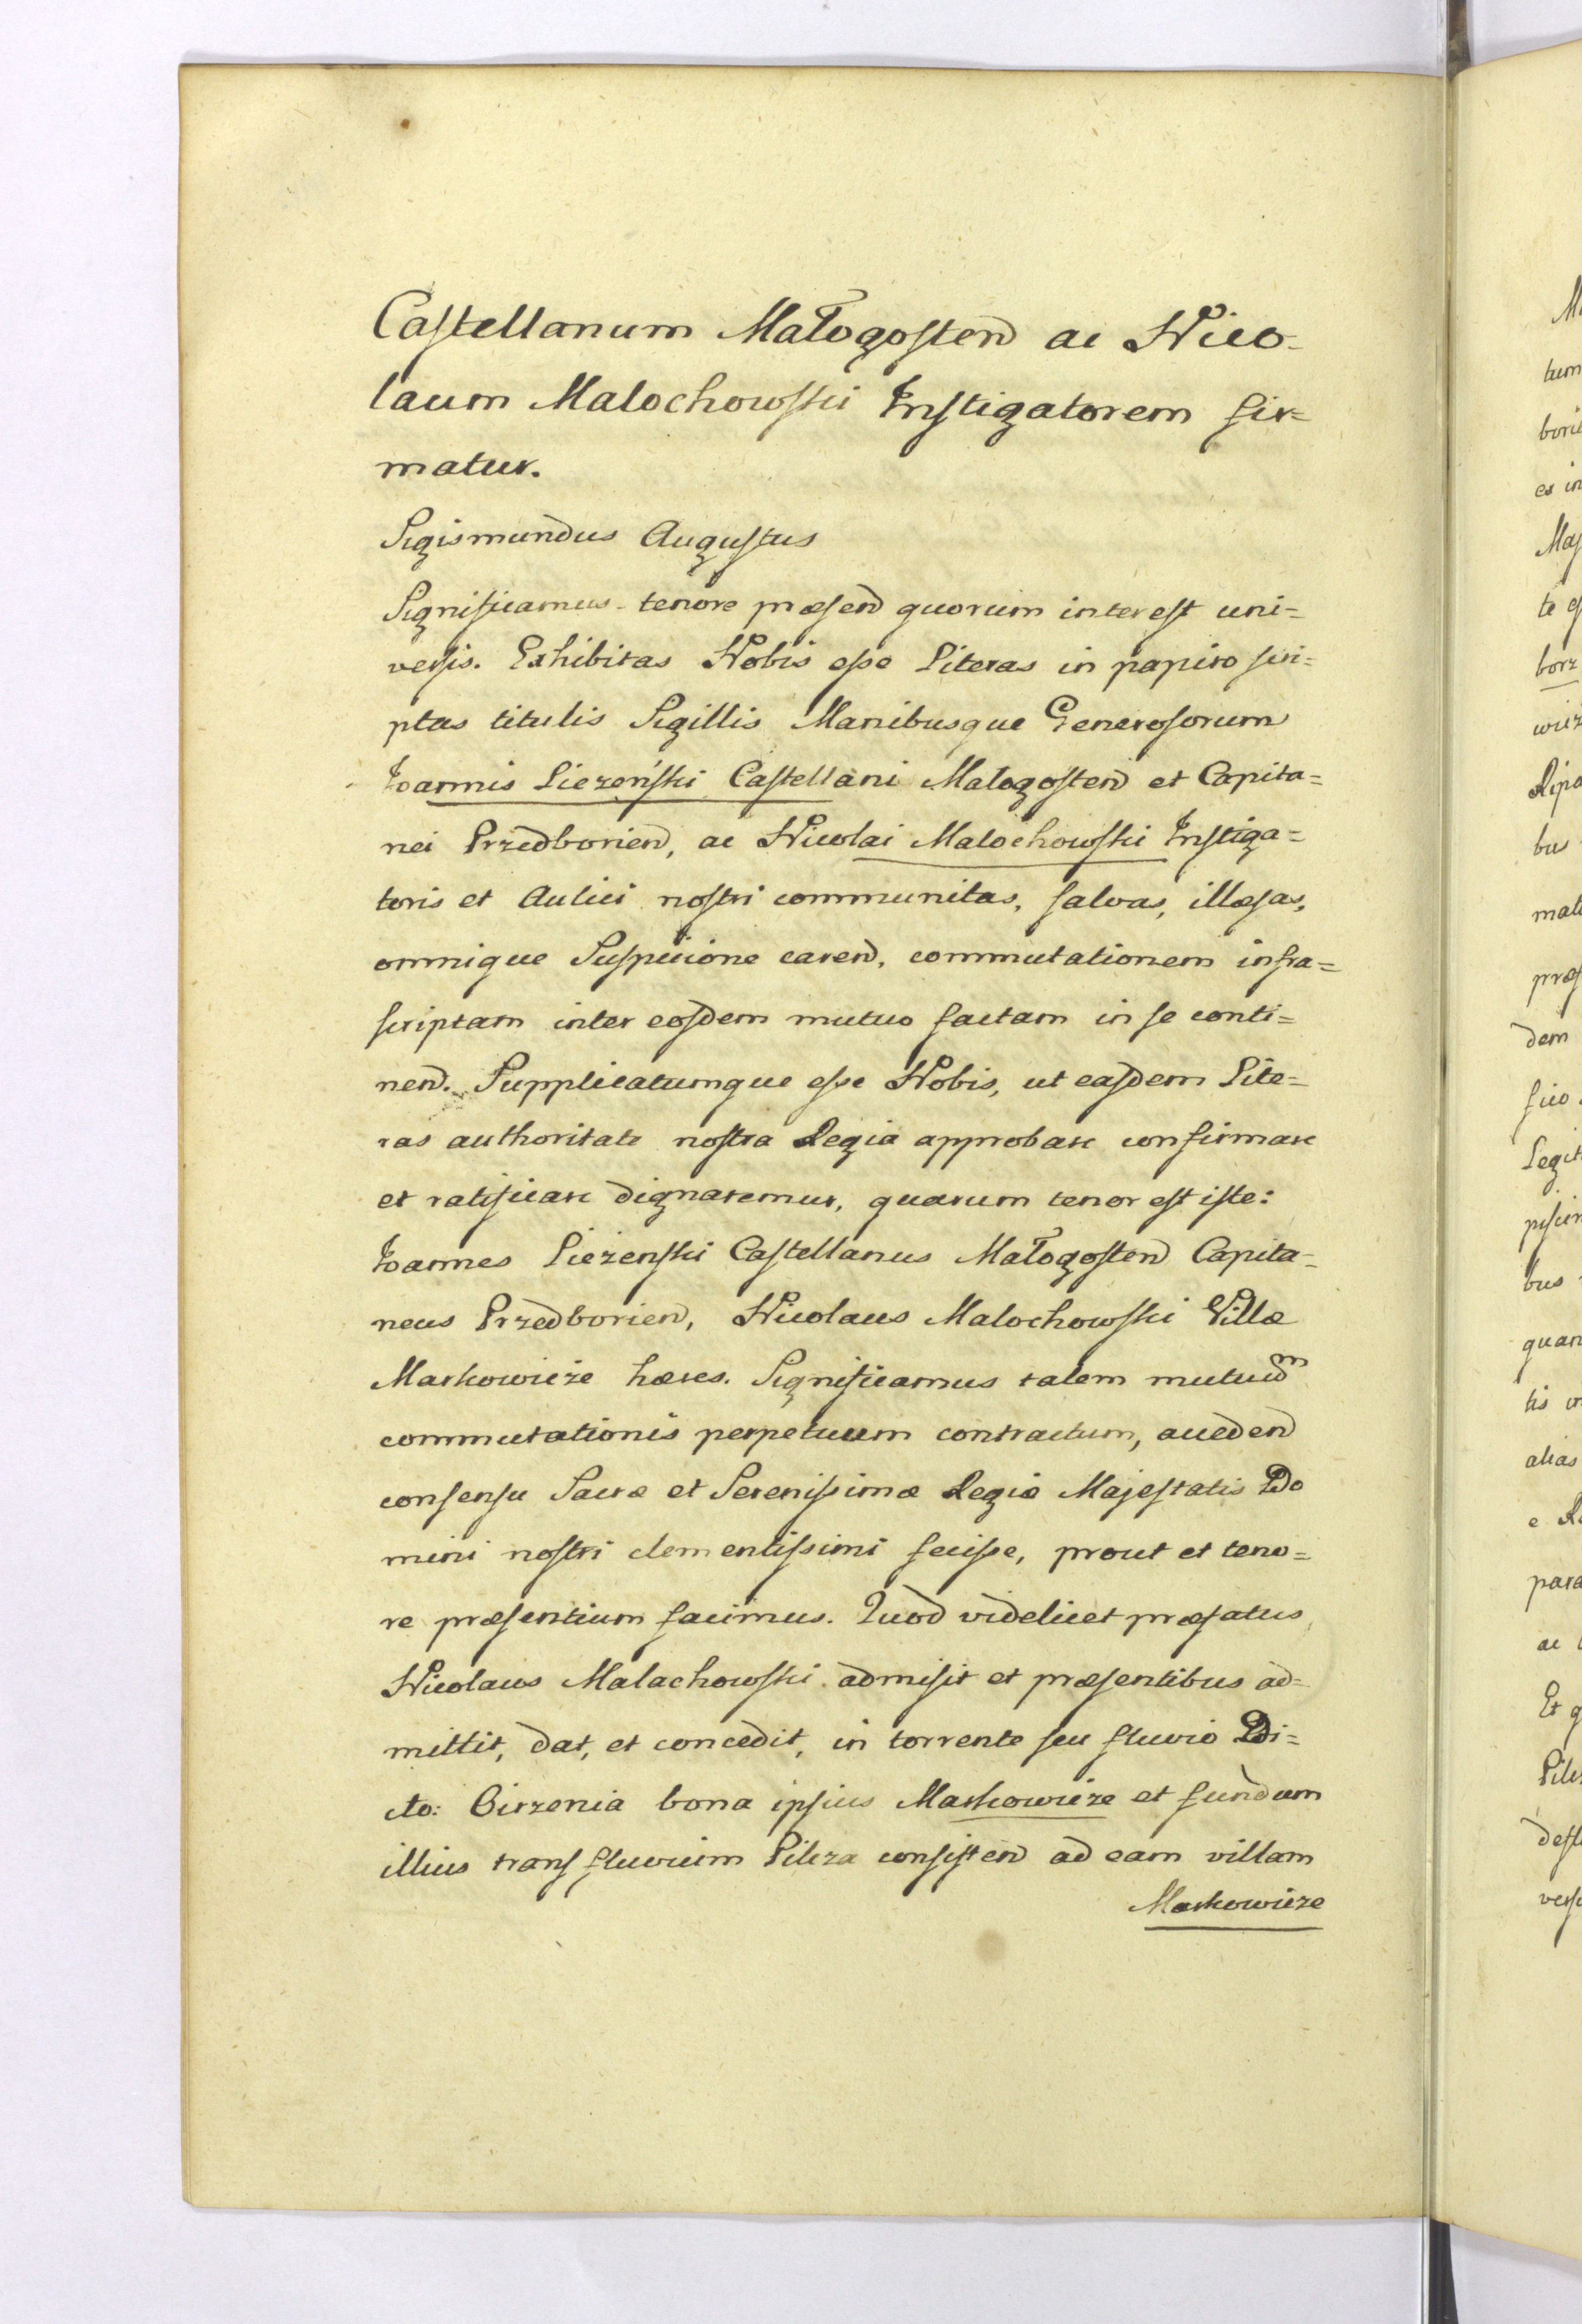 Castellanum Małogosten ac Nico-
laum Malochowski Instigatorem fir=
matur.
Sigismundus Augustus
Significamus tenore præsen quorum interest uni=
versis. Exhibitas Nobis esse Literas in papiro scri=
ptas titulis Sigillis Manibusque Generosorum
Joannis Liezeński Castellani Malogosten et Capita=
nei Przedborien, ac Nicolai Malochowski Instiga=
toris et Aulici nostri communitas, salvas, illæsas,
omnique Suspicione caren, commutationem infra=
scriptam inter eosdem mutuo factam in se conti=
nen. Supplicatumque esse Nobis, ut easdem Lite=
ras authoritate nostra Regia approbare confirmare
et ratificare dignaremur, quarum tenor est iste:
Joannes Liezenski Castellanus Małogosten Capita-
neus Przedborien, Nicolaus Malochowski Villæ
Markowicze hæres. Significamus talem mutuum
commutationis perpetuum contractum, acceden
consensu Sacræ et Serenissimæ Regiæ Majestatis Do
mini nostri clementissimi fecisse, prout et teno=
re præsentium facimus. Quod videlicet præfatus
Nicolaus Malachowski admisit et præsentibus ad=
mittit, dat, et concedit, in torrente seu fluvio Di=
cto: Birzenia bona ipsius Markowicze et fundum
illius trans fluvium Pilcza consisten ad eam villam
Markowicze
M
tum
borie
es in
Maj
te
borz
wicz
Ripa
bus
mal
præs
dem
fico
Legit
piscin
bus
quan
tis
alias
e
para
ac
Et q
Pilc
defl
vers